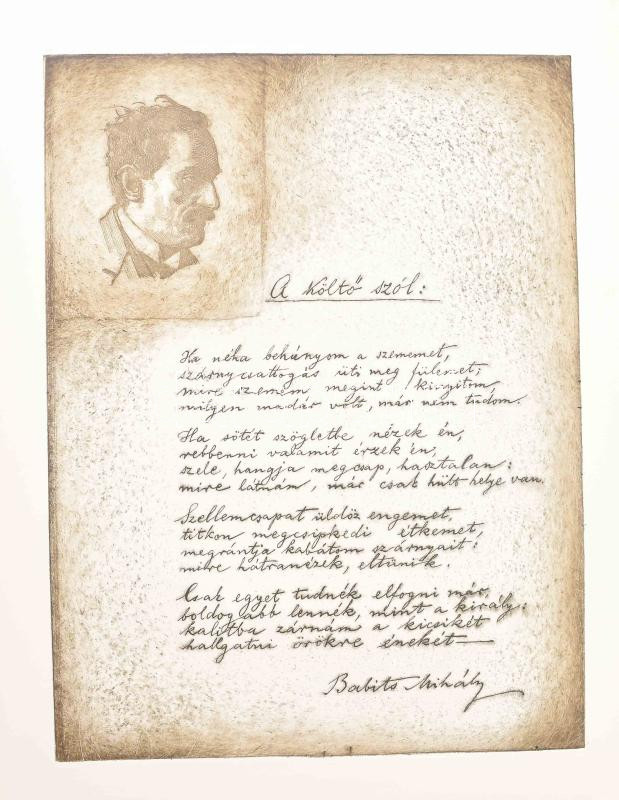 A Költő szól:
Ha néha behúnyom a szememet,
szárnycsattogás üti meg fülemet;
mire szemem megint kinyitom,
milyen madár volt, már nem tudom.
Ha sötét szögletbe nézek én,
rebbenni valamit érzek én,
szele, hangja megcsap, hasztalan:
mire látnám, már csak hűlt helye van.
Szellemcsapat üldöz engemet,
titkon megcsipkedi étkemet,
megrántja kabátom szárnyait:
mire hátranézek, eltünik.
Csak egyet tudnék elfogni már,
boldogabb lennék, mint a király:
kalitba zárnám a kicsikét
hallgatni örökre énekét—
Babits Mihály